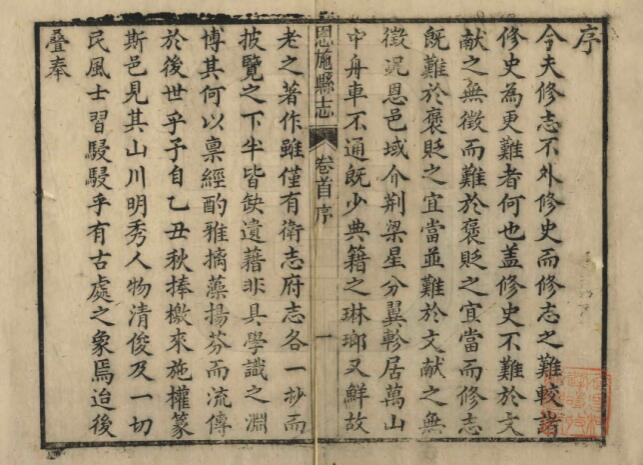 序
今夫修志不外修史而修志之難較諸
修史為更難者何也蓋修史不難於文
献之無徴而難於褒貶之宜當而修志
既難於褒貶之宜當並難於文献之無
徴况恩邑域介荆梁星分翼軫居萬山
中舟車不通既少典籍之琳瑯又鮮故
恩施縣志 卷首序 一
老之著作雖僅有衛志府志各一抄而
披覽之下半皆缺遺藉非具學識之淵
博其何以稟經酌雅摛藻揚芬而流傳
於後世乎予自乙丑秋捧檄來施權篆
斯邑見其山川明秀人物清俊及一切
民風士習駸駸乎有古處之象焉迨後
疊奉